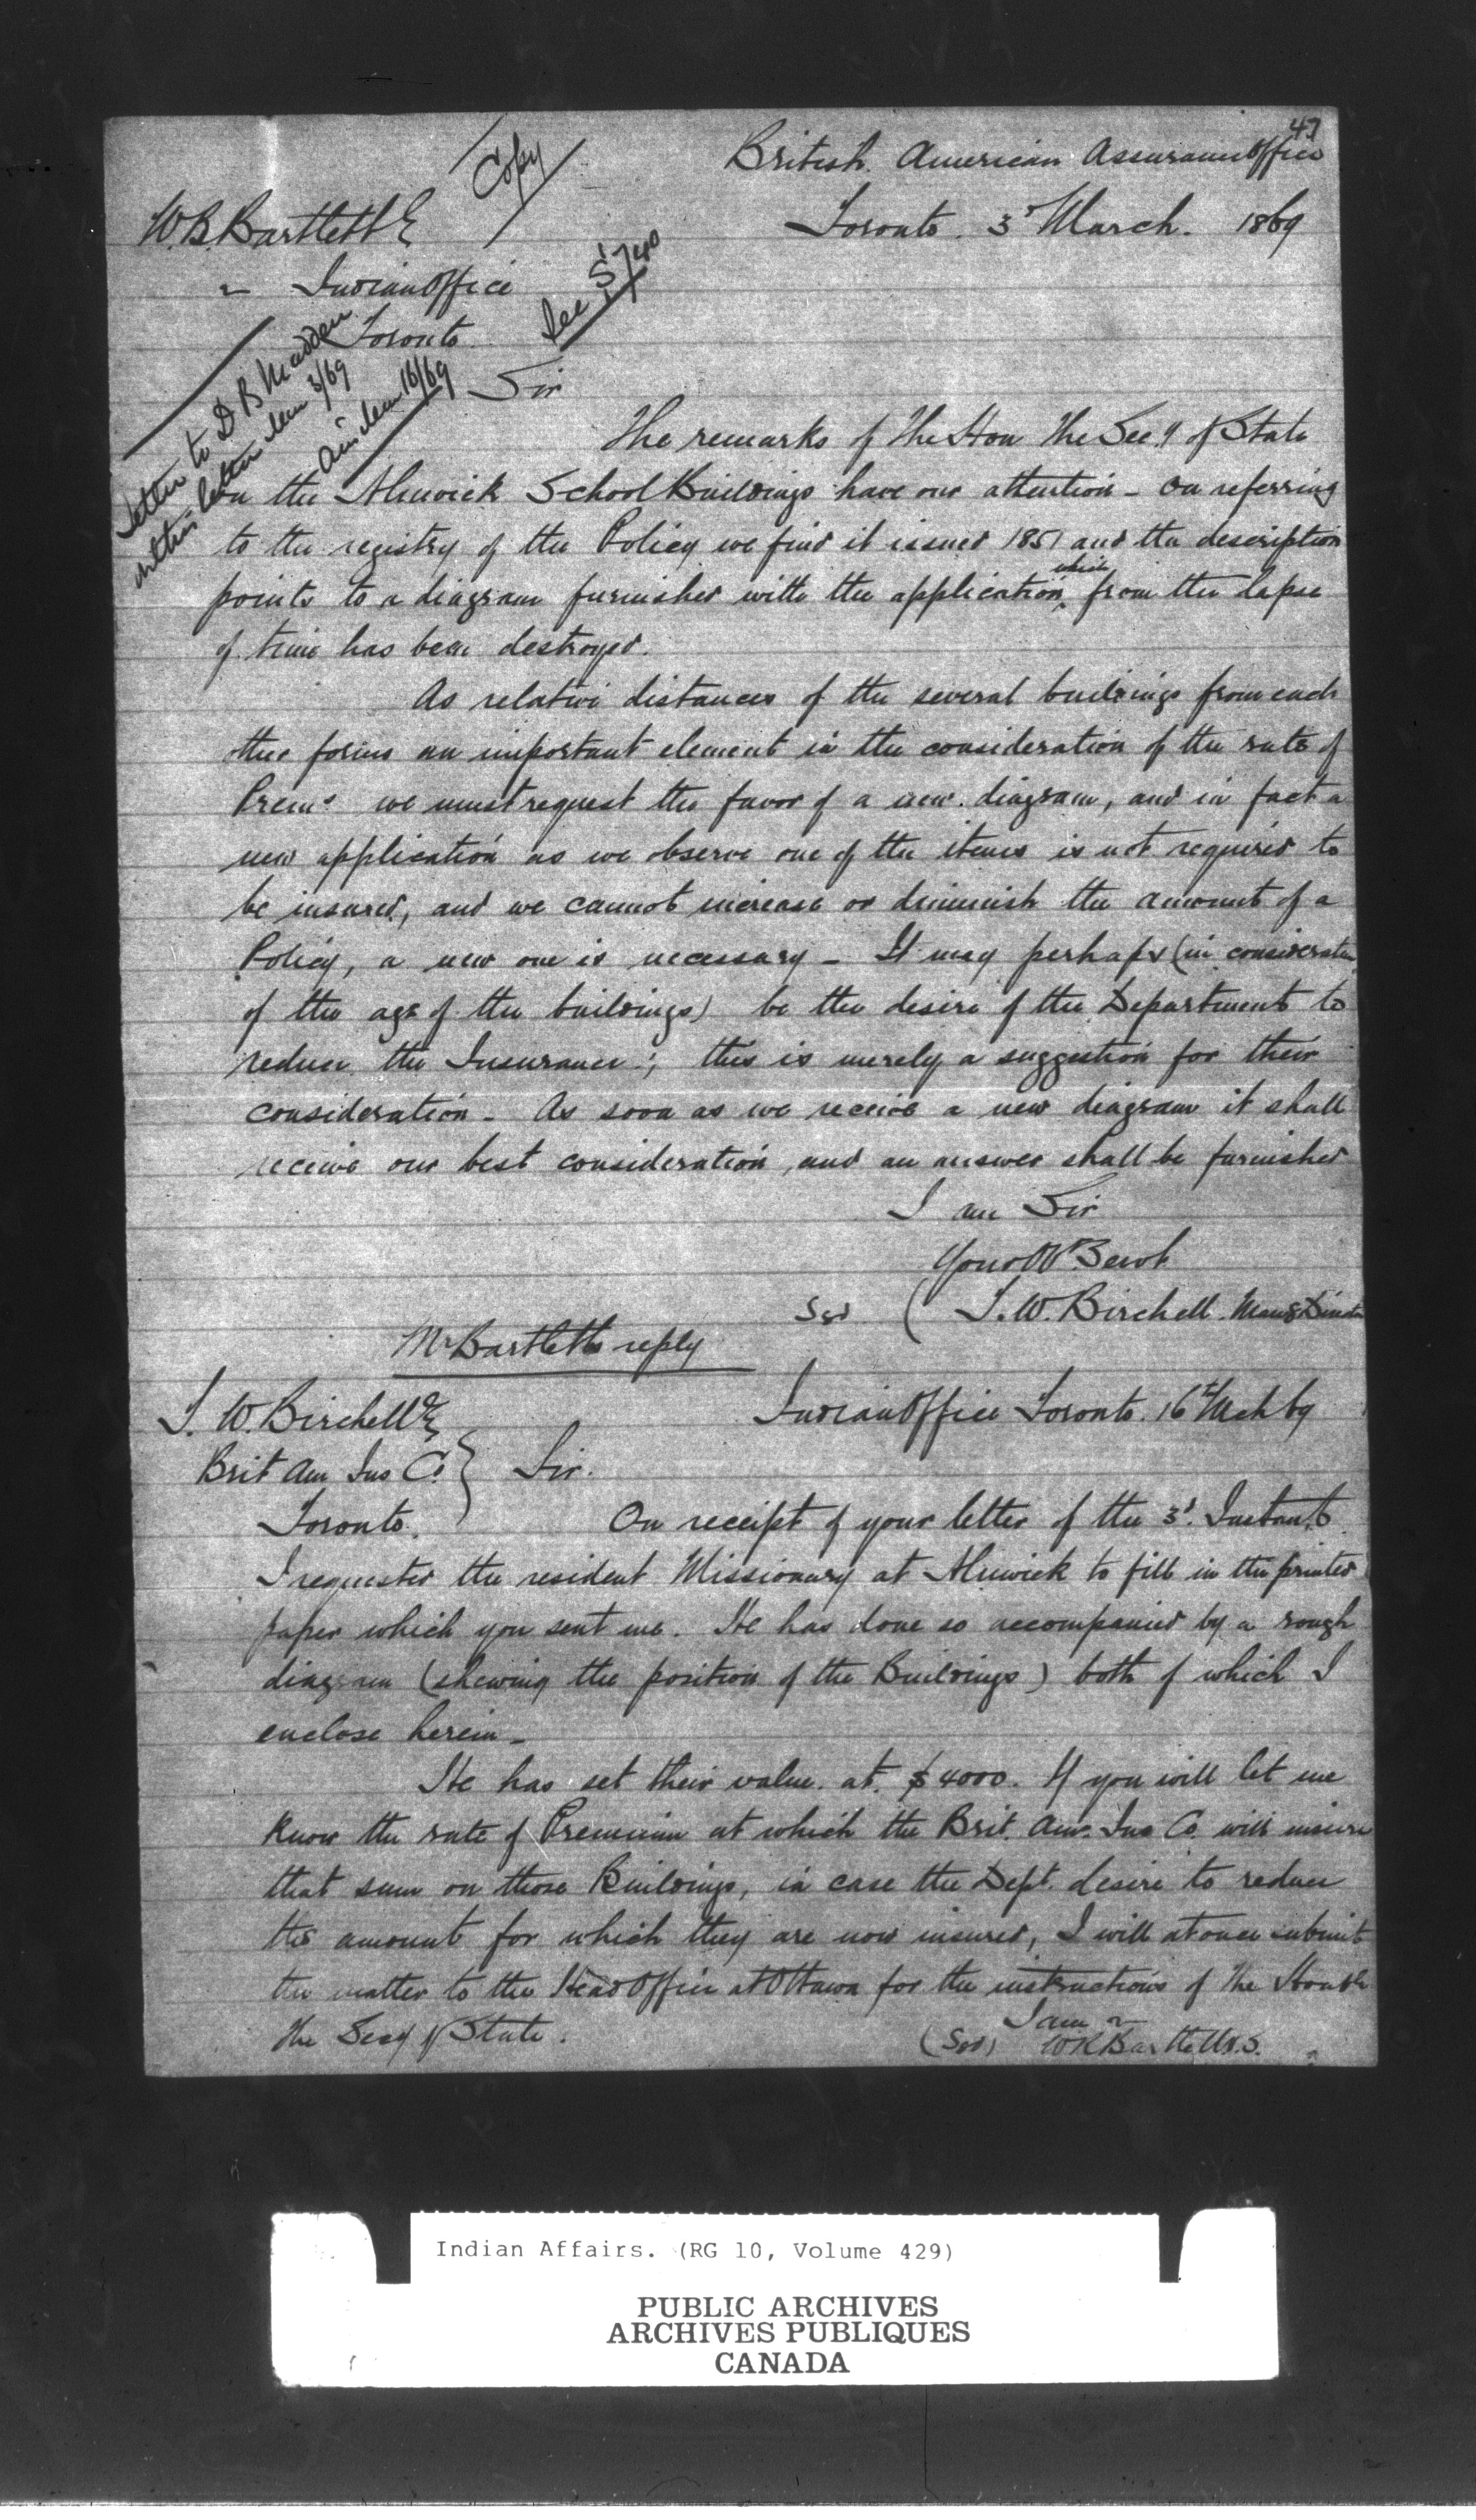 47
British American Assurance Office
Copy
W.B. Bartlett E
Toronto. 3d March. 1869
" Indian Office
Toronto
See 740
Letter to D B Madden
within letter 3/69
16/69
Sir
The remarks of The Hon The Secy of State
on the Alnwick School Buildings have our attention - On referring
to the registry of the Policy we find it issued 1851 and the description
points to a diagram furnished with the application which from the lapse
of time has been destroyed.
As relative distances of the several buildings from each
other forms an important element in the consideration of the rate of
Premm we must request the favor of a new diagram, and in fact a
new application as we observe one of the items is not required to
be insured, and we cannot increase or diminish the amount of a
Policy, a new one is necessary - It may perhaps (in consideration
of the age of the buildings) be the desire of the Department to
reduce the Insurance; this is merely a suggestion for their
consideration - As soon as we receive a new diagram it shall
receive our best consideration, and an answer shall be furnished
I am Sir
Your Ob Servt
Sgd ( T. W. Birchell. Mang Director
Mr Bartletts reply
T. W. Birchell E
Indian Office Toronto. 16th Mch 69
Brit Am Ins Co } Sir.
Toronto.
On receipt of your letter of the 3d. Instant
I requested the resident Missionary at Alnwick to fill in the printed
paper which you sent me. He has done so accompanied by a rough
diagram (shewing the position of the Buildings) both of which I
enclose herein -
He has set their value at $4000. If you will let me
know the rate of Premium at which the Brit. Am. Ins Co. will insure
that sum on those Buildings, in case the Dept. desire to reduce
the amount for which they are now insured, I will at once submit
the matter to the Head Office at Ottawa for the instructions of The Honble
The Secy of State.
I am
(Sgd) W R Bartlett V.S.
Indian Affairs. (RG 10, Volume 429)
PUBLIC ARCHIVES
ARCHIVES PUBLIQUES
CANADA